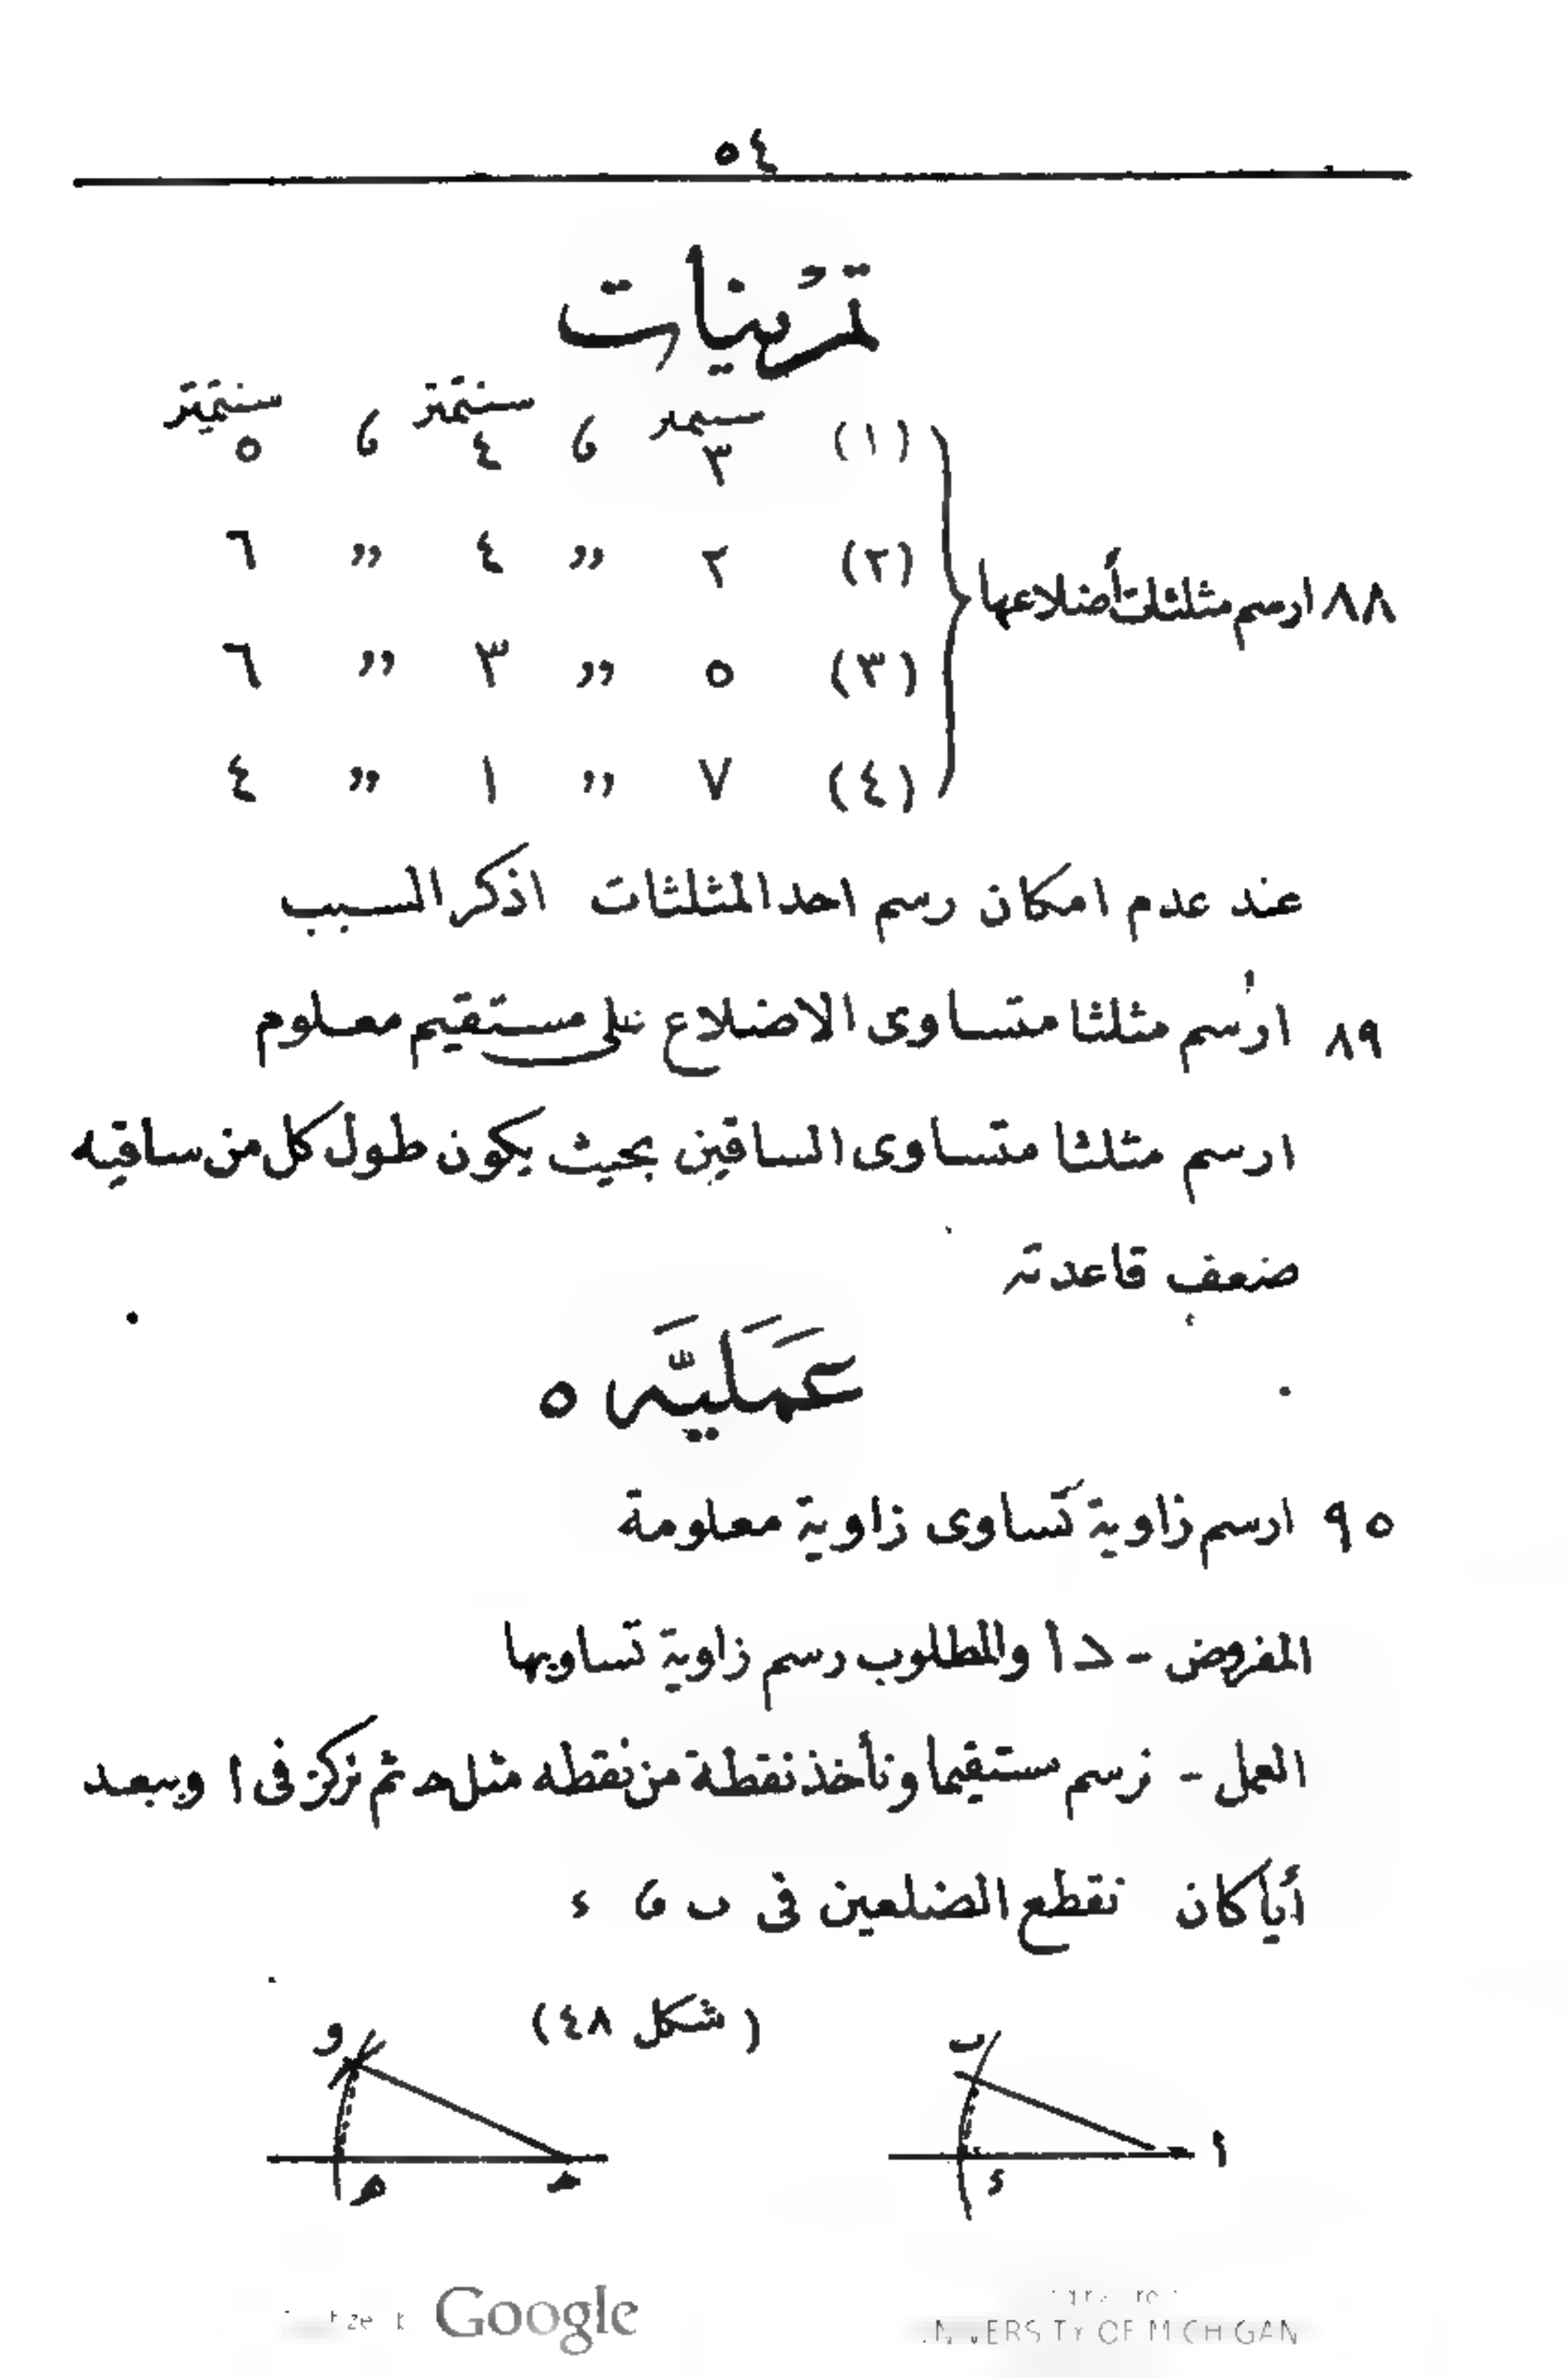 ٥٤
تمرينات
(١) ٣ سنتمتر و ٤ سنتمتر و ٥ سنتمتر
(٢) ٢ ,, ٤ ,, ٦
٨٨ ارسم مثلثات أضلاعها
(٣) ٥ ,, ٣ ,, ٦
(٤) ٧ ,, ١ ,, ٤
عند عدم امكان رسم احد المثلثات اذكر السبب
٨٩ ارسم مثلثا متساوى الاضلاع على مستقيم معلوم
ارسم مثلثا متساوى الساقين بحيث يكون طول كل من ساقيه
ضعف قاعدته
عَمَليَّه ٥
٩٥ ارسم زاوية تساوى زاوية معلومة
المفروض - > ا والمطلوب رسم زاوية تساويها
العمل - نرسم مستقيما ونأخذ نقطة من نقطه مثل ه ثم نركز فى ا وببعد
أياكان نقطع الضلعين فى ب و د
(شكل ٤٨)
و
ب
ا
ه
ح
د
Google
UNIVERSITY OF MICHIGAN